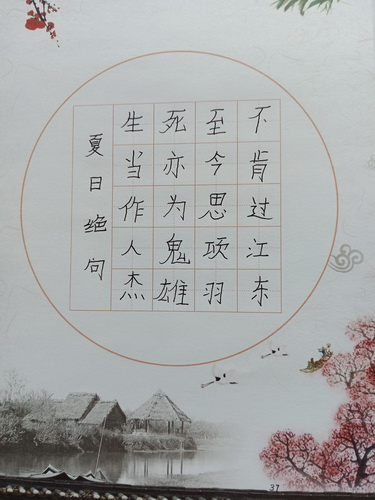 夏日绝句
生当作人杰
死亦为鬼雄
至今思项羽
不肯过江东
37